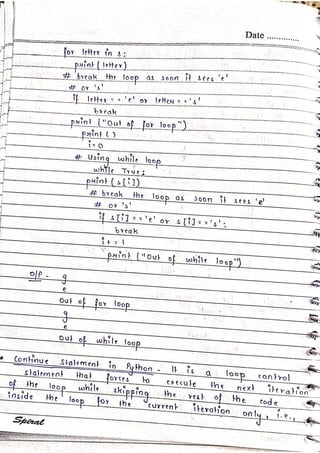 Date ..............
for letter in s:
print (letter)
# break the loop as soon it sees 'e'
# or 's'
if letter == 'e' or letter == 's'
break
print ("Out of for loop")
print ( )
i=0
# Using while loop
while True:
print (s[i])
# break the loop as soon it sees 'e'
# or 's'
if s[i] == 'e' or s[i] == 's':
break
i+=1
print ("Out of while loop")
O/P - g
e
Out of for loop
g
e
Out of while loop
• Continue Statement in Python - It is a loop control
statement that forces to execute the next iteration
of the loop while skipping the rest of the code
inside the loop for the current iteration only, i.e.,
Spiral